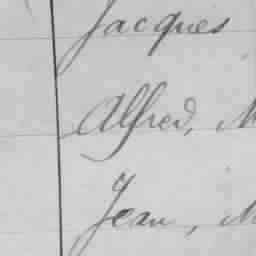 Jacques
Alfred, M
Jean, M